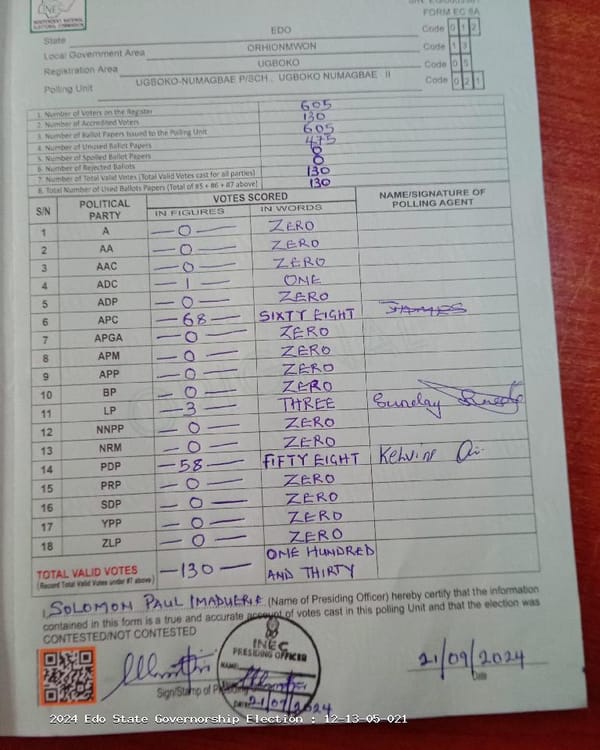 INDEPENDENT NATIONAL
ELECTORAL COMMISSION
FORM EC 8A
State EDO Code 0 1 2
Local Government Area ORHIONMWON Code 1 3
Registration Area UGBOKO Code 0 5
Polling Unit UGBOKO-NUMAGBAE P/SCH., UGBOKO NUMAGBAE II Code 0 2 1
1. Number of Voters on the Register 605
2. Number of Accredited Voters 130
3. Number of Ballot Papers Issued to the Polling Unit 605
4. Number of Unused Ballot Papers 475
5. Number of Spoiled Ballot Papers 0
6. Number of Rejected Ballots 0
7. Number of Total Valid Votes (Total Valid Votes cast for all parties) 130
8. Total Number of Used Ballots Papers (Total of #5 + #6 + #7 above) 130
S/N POLITICAL PARTY VOTES SCORED NAME/SIGNATURE OF POLLING AGENT
IN FIGURES IN WORDS
1 A —0— ZERO
2 AA —0— ZERO
3 AAC —0— ZERO
4 ADC —1— ONE
5 ADP —0— ZERO
6 APC —68— SIXTY EIGHT JAMES
7 APGA —0— ZERO
8 APM —0— ZERO
9 APP —0— ZERO
10 BP —0— ZERO
11 LP —3— THREE Sunday
12 NNPP —0— ZERO
13 NRM —0— ZERO
14 PDP —58— FIFTY EIGHT Kelvine
15 PRP —0— ZERO
16 SDP —0— ZERO
17 YPP —0— ZERO
18 ZLP —0— ZERO
TOTAL VALID VOTES —130— ONE HUNDRED
(Record Total Valid Votes under #7 above) AND THIRTY
I, SOLOMON PAUL IMADUERIE (Name of Presiding Officer) hereby certify that the information
contained in this form is a true and accurate account of votes cast in this polling Unit and that the election was
CONTESTED/NOT CONTESTED
INEC
PRESIDING OFFICER
NAME:
Sign/Stamp of Presiding
DATE: 21/09/2024
21/09/2024
Date
2024 Edo State Governorship Election : 12-13-05-021